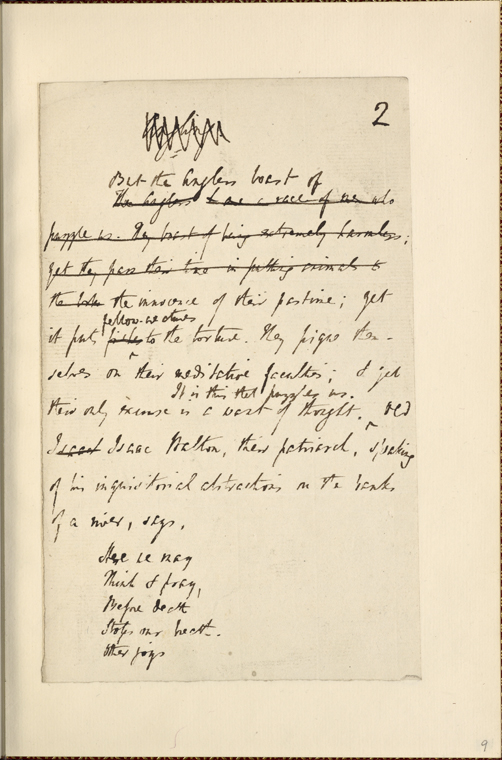 2
But the Anglers boast of
The Anglers are a race of men who
puzzle us. They boast of being extremely harmless;
yet they pass their time in putting animals to
the torture the innocence of their pastime; yet
fellow-creatures
it puts fishes to the torture. They pique them-
selves on their meditative faculties; & yet
It is this that puzzles us.
their only excuse is a want of thought. Old
Isaac Isaac Walton, their patriarch, speaking
of his inquisitorial abstractions on the banks
of a river, says,
Here we may
Think & pray,
Before death
Stops our breath.
Other joys
9